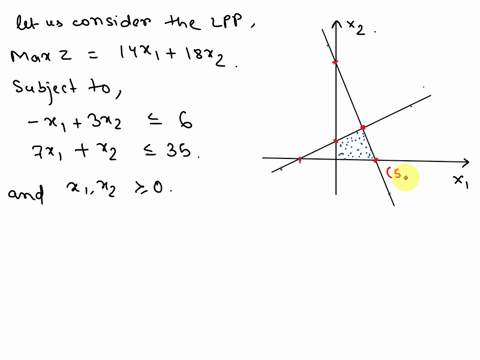 let us consider the LPP,
Max Z = 14x₁ + 18x₂.
Subject to,
-x₁ + 3x₂ ≤ 6
7x₁ + x₂ ≤ 35.
and x₁, x₂ ≥ 0.
x₂
(5,
x₁